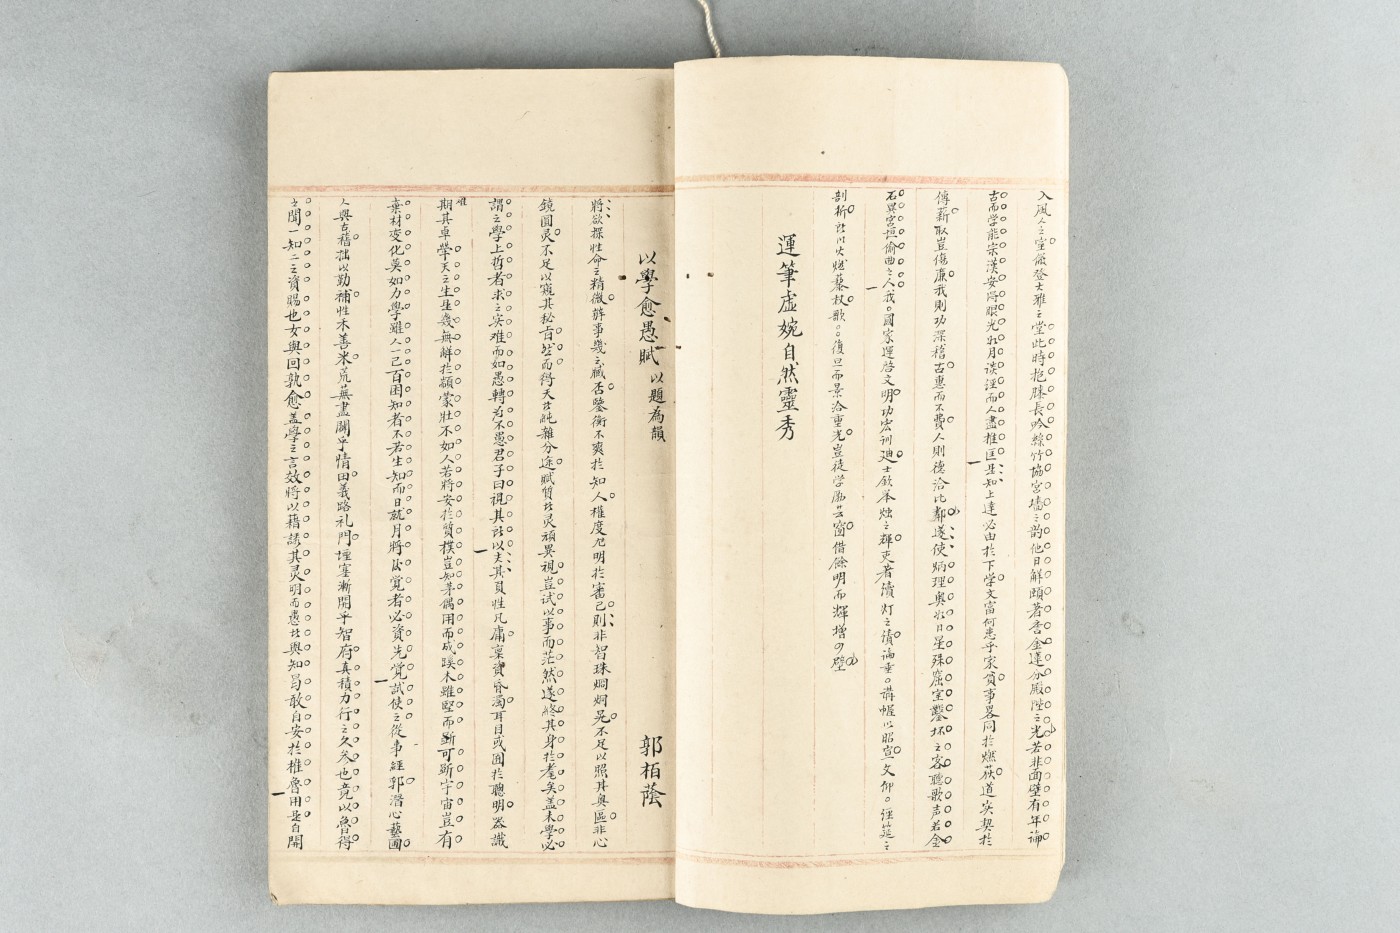 入風人之室儼登大雅之堂此時抱膝長吟綠竹協宮墻之韵他日解頤著杏金蓮分殿陛之光若非面壁有年論
古而学能宗漢安得眼光如月读逕而人盡推匡是知上達必由於下学文富何患乎家貧事畧同於燃荻道实契於
傳薪取豈傷廉我則功深稽古惠而不費人則德洽比鄰遂使炳理奥如日星殊窟室鑿坏之客聽歌声若金
石異宮垣偷曲之人我國家運啓文明功宏訓廸士欽奎烛之輝吏著讀灯之績論重講幄以昭宣文仰經筵之
剖析所以火燃藜杖歌復旦而景洽重光豈徒学勵芸窗借餘明而輝增四壁
運筆虛婉自然靈秀
以學愈愚賦 以題為韻 郭柏蔭
將欲探性命之精微辨事幾之臧否鑒衡不爽於知人權度尤明於審己則非智珠炯炯晃不足以照其奥區非心
鏡圓灵不足以窺其秘旨然而得天廿純雜分途賦質廿灵頑異視豈試以事而茫然遂終其身於耄矣盖未學必
謂之學上哲者求之实难而如愚轉若不愚君子曰視其所以夫其員性凡庸稟資昏濁耳目或囿於聰明器識
期其卓犖天之生是幾無鮮於顓蒙壯不如人若將安於質樸豈知茅偶用而成蹊木雖堅而斲可斲宇宙豈有
雅
棄材变化莫如力學雖人一己百困知者不若生知而日就月將後覺者必資先覺試使之從事經郛潛心藝圃
人與古稽拙以勤補性禾善米荒蕪盡闢乎情田義路礼門堙塞漸開乎智府真積力行之久参也竟以魯得
之聞一知二之資賜也女與回孰愈盖學之言效將以藉誘其灵明而愚廿與知曷敢自安於椎魯用是自開